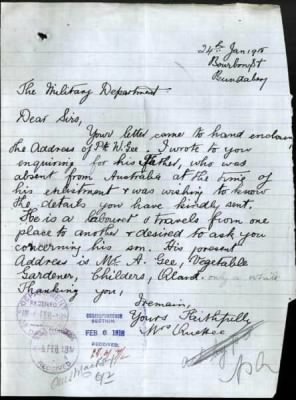 24th Jan 1918
Bourbon St
Bundaberg
The Military Department
Dear Sirs,
Your letter came to hand enclosing
the Address of Pte W. Gee. I wrote to you
enquiring for his Father, who was
absent from Australia at the time of
his enlistment & was wishing to know
the details you have kindly sent.
He is a labourer & travels from one
place to another & desired to ask you
concerning his son. His present
Address is Mr. A. Gee, Vegetable
Gardener, Childers, Qland. only a while
Thanking you,
I remain,
Yours Faithfully
Mrs
RECEIVED
FEB 6 1918
6 FEB 1918
RECEIVED